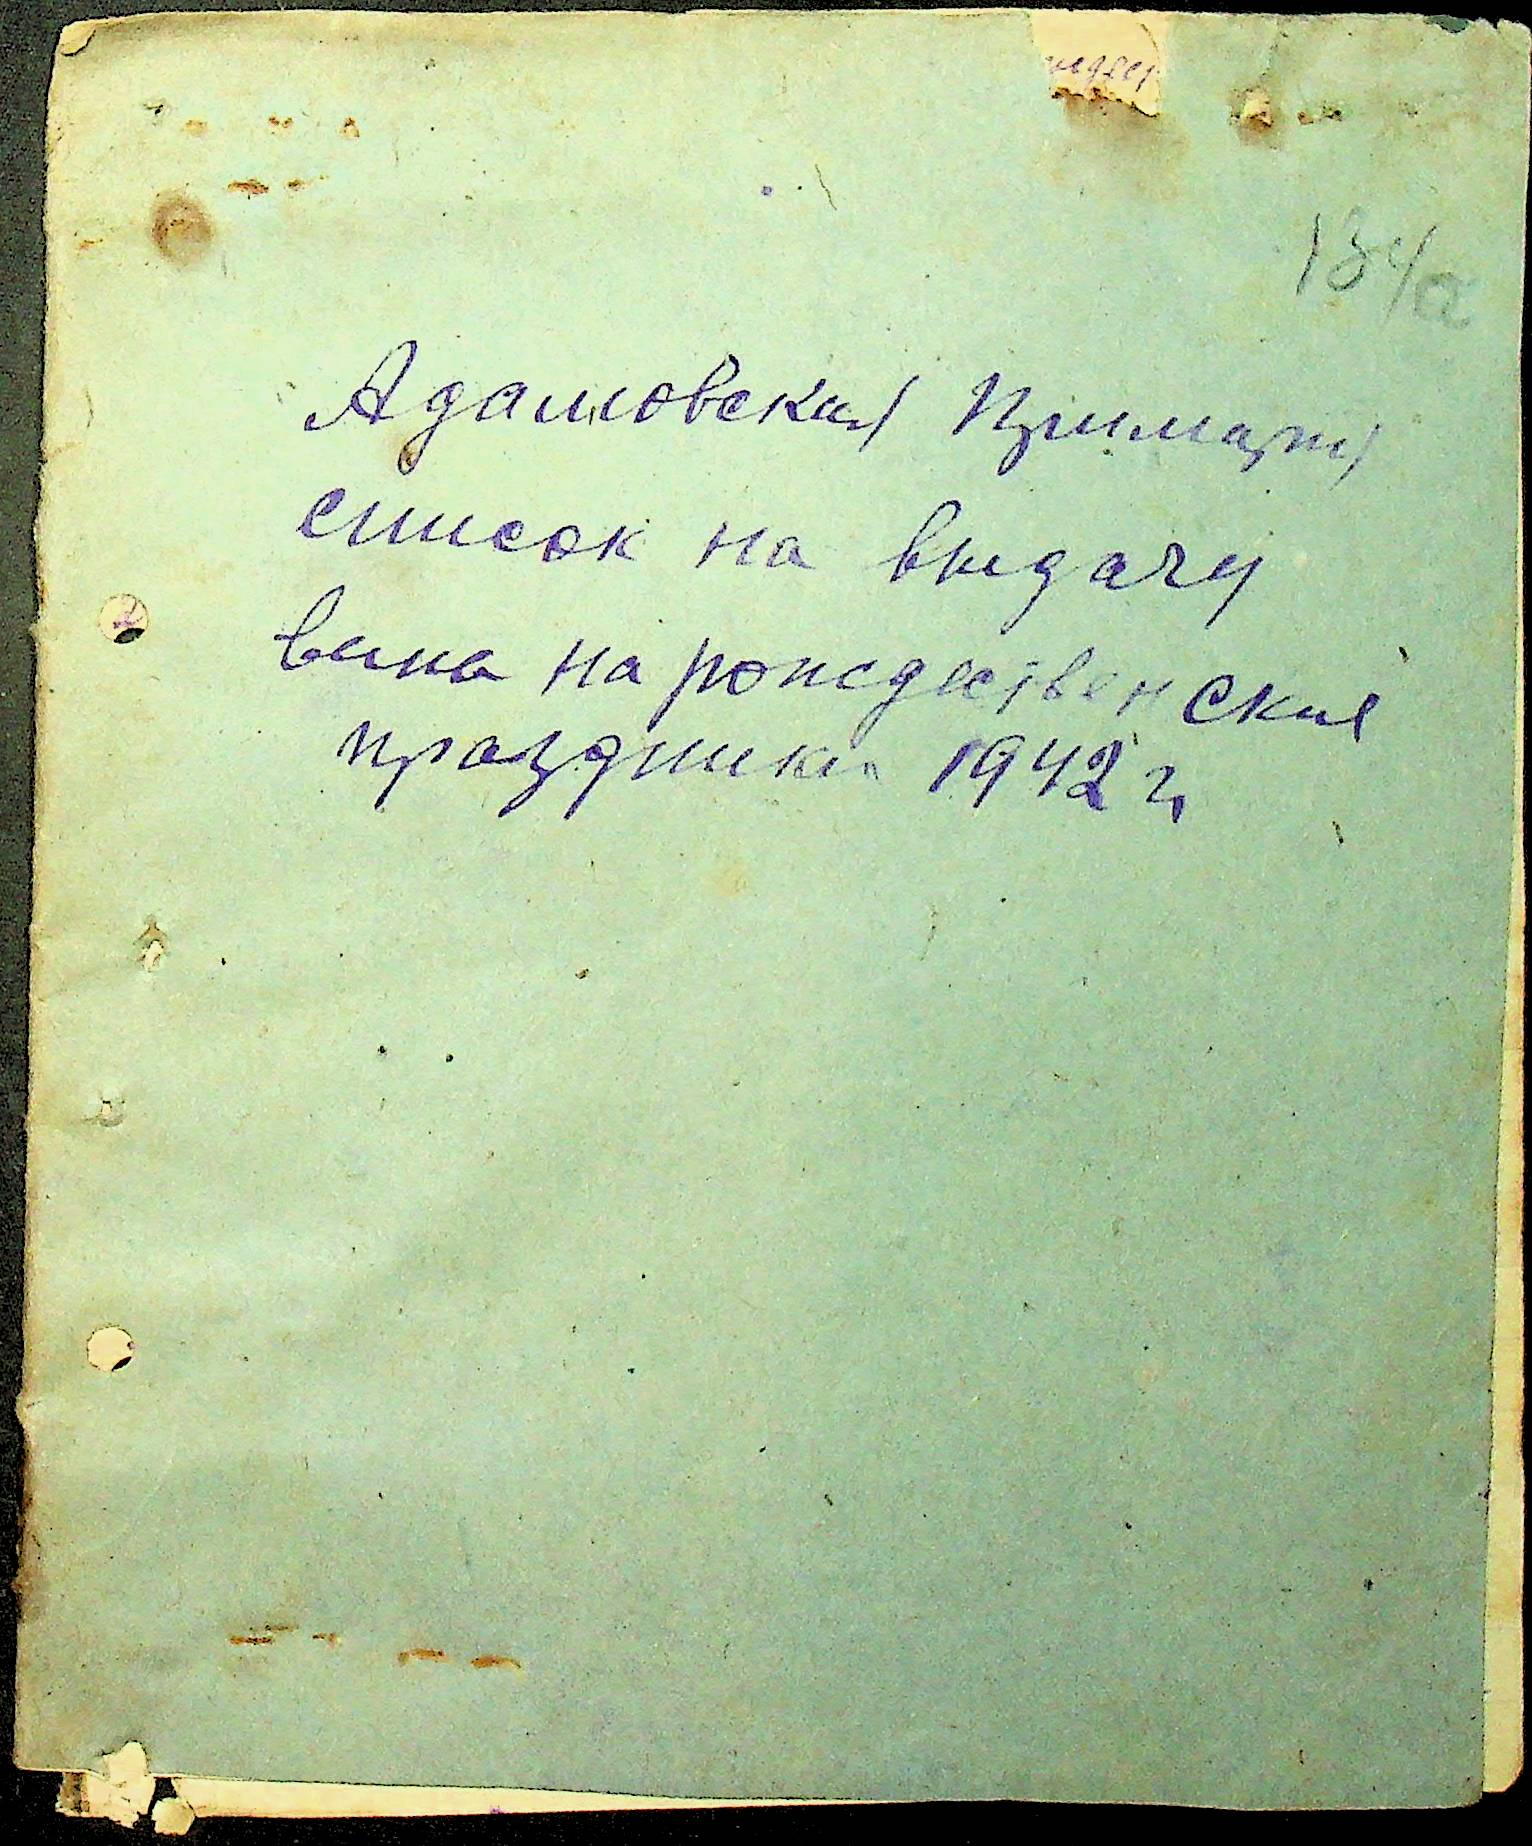 134/а
Адамовская Примария
список на выдачу
вина на рождественския
праздники 1942 г.